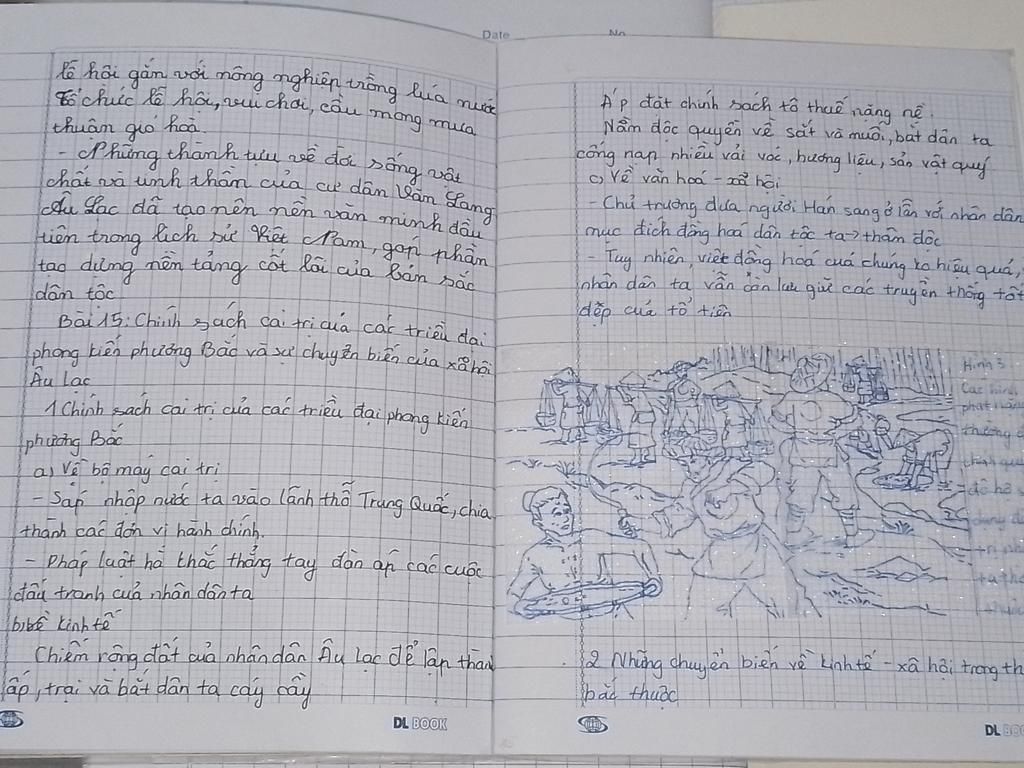 lễ hội gắn với nông nghiệp trồng lúa nước
Tổ chức lễ hội, vui chơi, cầu mong mưa
thuận gió hoà.
- Những thành tựu về đời sống vật
chất và tinh thần của cư dân Văn Lang
Âu Lạc đã tạo nên nền văn minh đầu
tiên trong lịch sử Việt Nam, góp phần
tạo dựng nền tảng cốt lõi của bản sắc
dân tộc
Bài 15: Chính sách cai trị của các triều đại
phong kiến phương Bắc và sự chuyển biến của xã hội
Âu lạc
1 Chính sách cai trị của các triều đại phong kiến
phương Bắc
a) Về bộ máy cai trị
- Sáp nhập nước ta vào lãnh thổ Trung Quốc, chia
thành các đơn vị hành chính.
- Pháp luật hà khắc thẳng tay đàn áp các cuộc
đấu tranh của nhân dân ta
b) Về kinh tế
Chiếm ruộng đất của nhân dân Âu Lạc để lập thành
ấp, trại và bắt dân ta cấy cầy
DL BOOK
Date
No
Áp đặt chính sách tô thuế nặng nề.
Nắm độc quyền về sắt và muối, bắt dân ta
cống nạp nhiều vải vóc, hương liệu, sản vật quý
c) Về văn hoá - xã hội
- Chủ trương đưa người Hán sang ở lẫn với nhân dân
mục đích đồng hoá dân tộc ta → thâm độc
- Tuy nhiên, việc đồng hoá của chúng ko hiệu quả,
nhân dân ta vẫn còn lưu giữ các truyền thống tốt
đẹp của tổ tiên
Hình 3
Các hình
phát nặng
thường
chính quy
đô hộ
dùng
trị
ta
2 Những chuyển biến về kinh tế - xã hội trong th
bắc thuộc
DL BOO